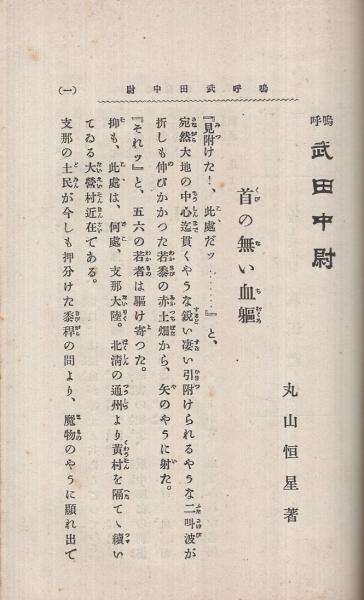 嗚呼武田中尉
（一）
嗚呼武田中尉
丸山恒星著
首の無い血軀
『見附けた！、此處だッ……』と、
宛然大地の中心迄貫くやうな鋭い凄い引附けられるやうな二叫波が
折しも伸びかかつた若黍の赤土畑から、矢のやうに射た。
『それッ』と、五六の若者は驅け寄つた。
抑も、此處は、何處、支那大陸。北淸の通州より黃村を隔てゝ續い
てゐる大營村近在である。
支那の土民が今しも押分けた黍稈の間より、魔物のやうに顯れ出で